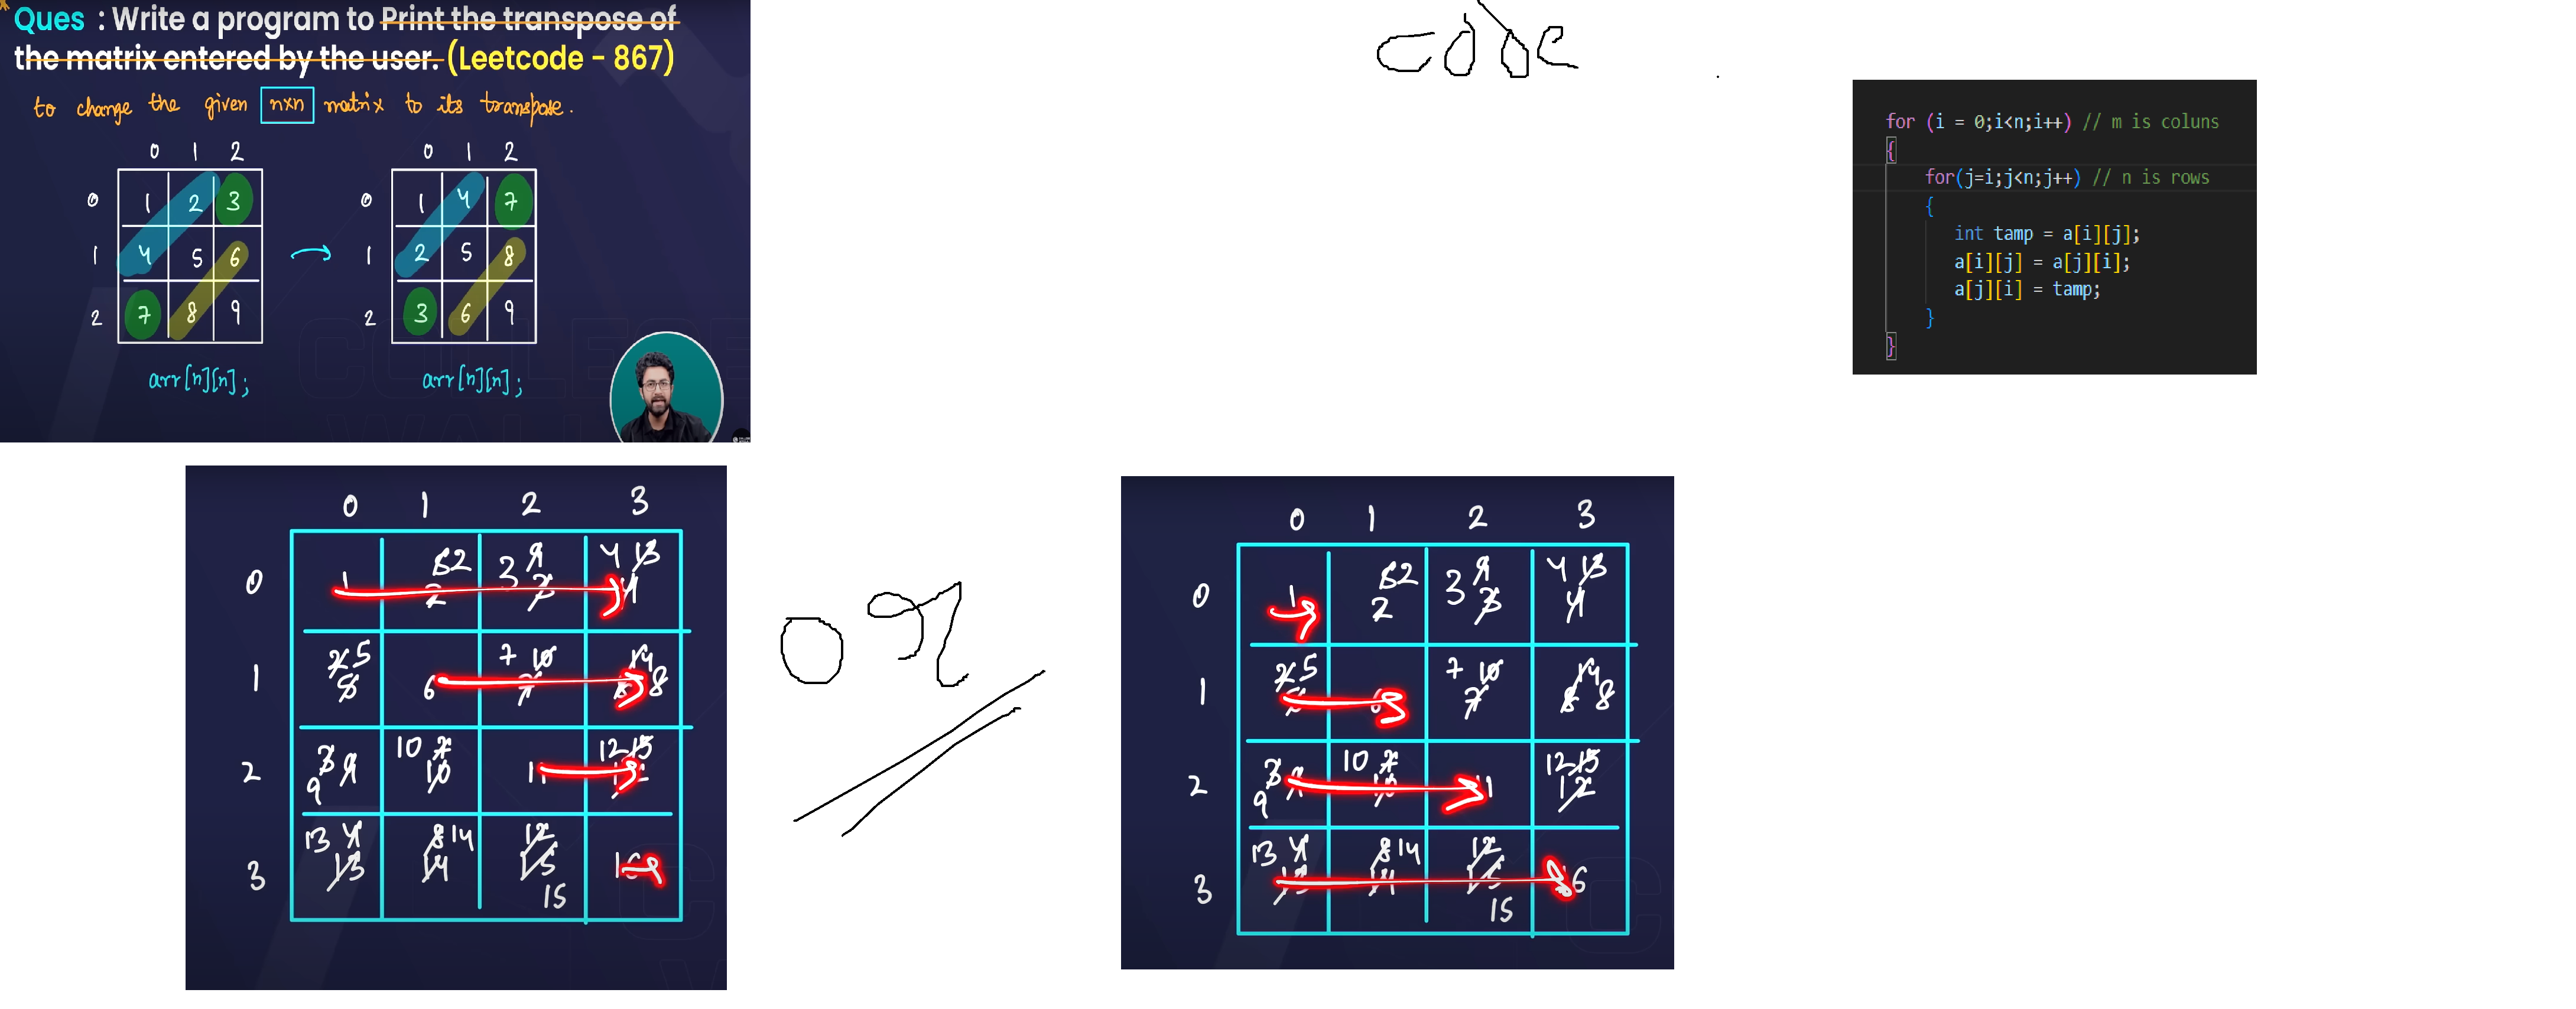 Ques : Write a program to Print the transpose of
the matrix entered by the user. (Leetcode - 867)
to change the given nxn matrix to its transpose.
0 1 2
0 1 2 3
1 4 5 6
2 7 8 9
arr[n][n];
0 1 2
0 1 4 7
1 2 5 8
2 3 6 9
arr[n][n];
code
for (i = 0;i<n;i++) // m is coluns
{
for(j=i;j<n;j++) // n is rows
{
int tamp = a[i][j];
a[i][j] = a[j][i];
a[j][i] = tamp;
}
}
0 1 2 3
0 1 5 2 2 3 9 3 4 13 4
1 2 5 5 6 7 10 7 14 8 8
2 3 9 9 10 7 10 11 12 15 12
3 13 4 13 8 14 14 12 15 15 16
or
0 1 2 3
0 1 5 2 2 3 9 3 4 13 4
1 2 5 5 6 7 10 7 14 8 8
2 3 9 9 10 7 10 11 12 15 12
3 13 4 13 8 14 14 12 15 15 16